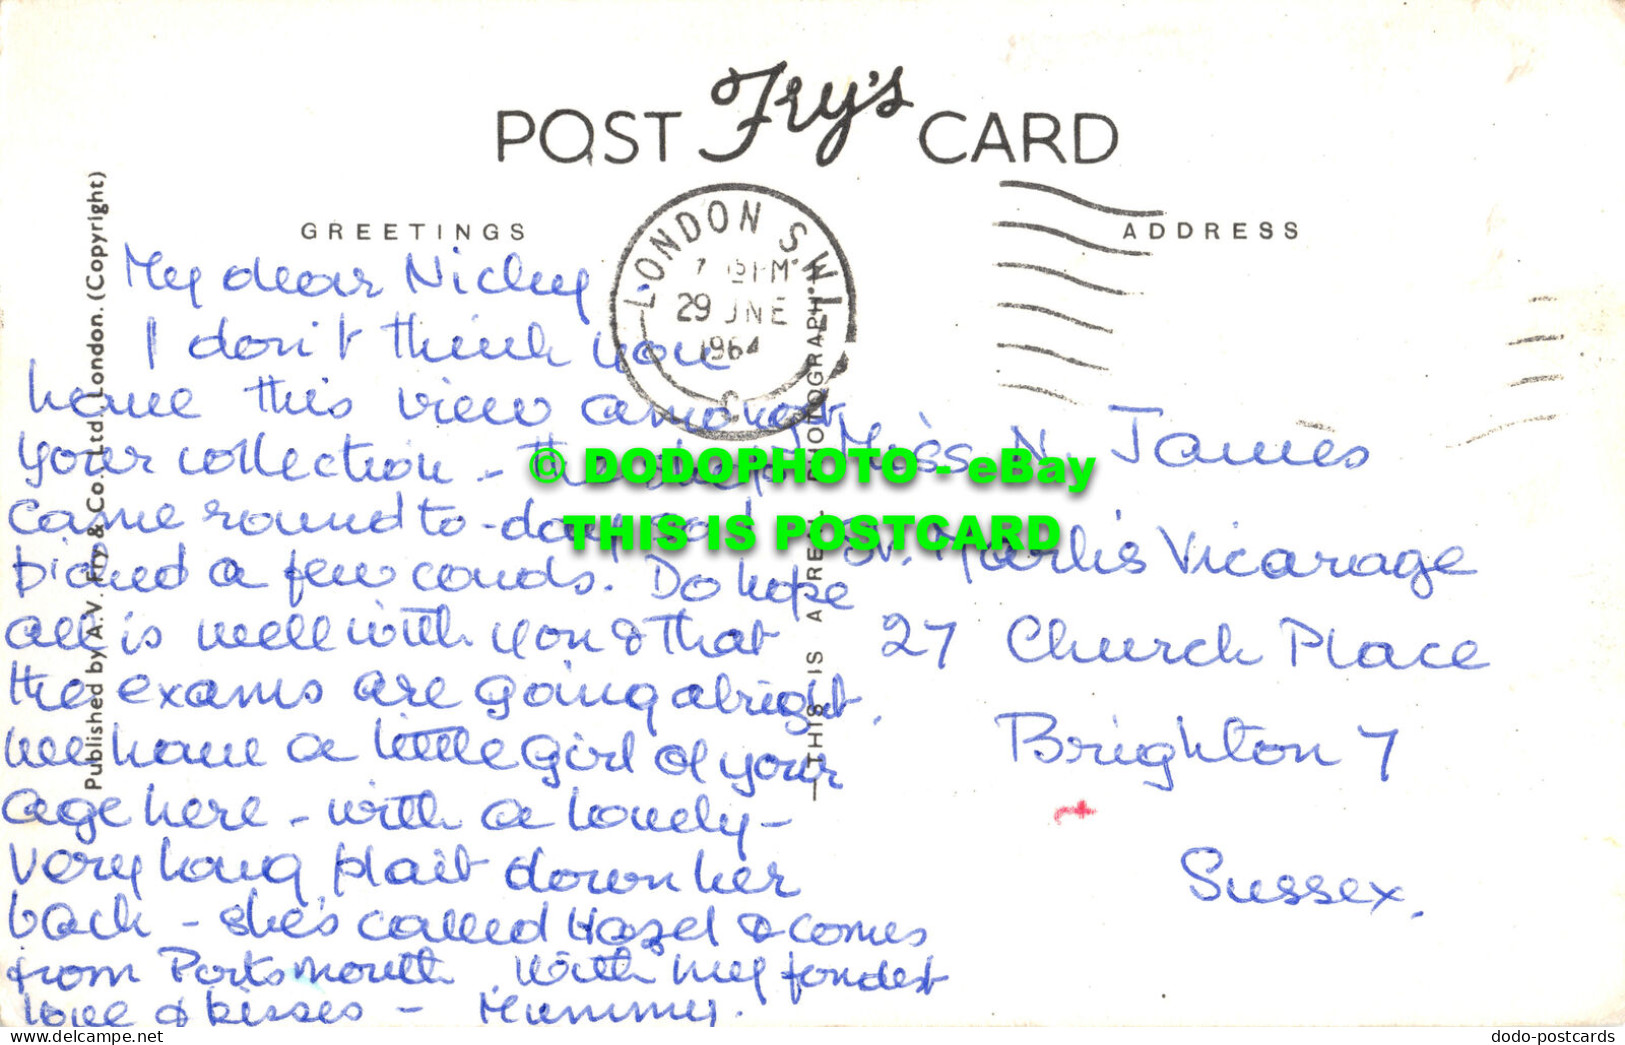 POST Fry's CARD
GREETINGS
ADDRESS
LONDON S.W.1
29 JNE
1964
C
Published by A.V. Fry & Co. Ltd. London. (Copyright)
THIS IS A REAL PHOTOGRAPH
My dear Nicky
I don't think you
have this view amongst
your collection - The
came round to-day and
a few cards. Do hope
all is well with you & that
the exams are going alright.
We have a little girl of your
age here - with a lovely -
very long plait down her
back - she's called Hazel & comes
from Portsmouth. With my fondest
love & kisses - Mummy.
Miss N. James
St. Mark's Vicarage
27 Church Place
Brighton 7
Sussex.
© DODOPHOTO - eBay
THIS IS POSTCARD
www.delcampe.net
dodo-postcards